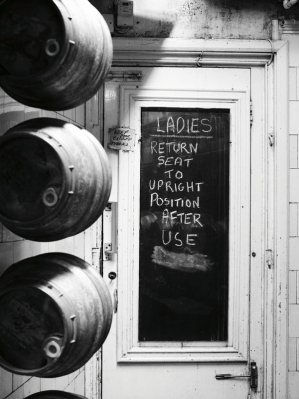 LADIES
RETURN
SEAT
TO
UPRIGHT
POSITION
AFTER
USE